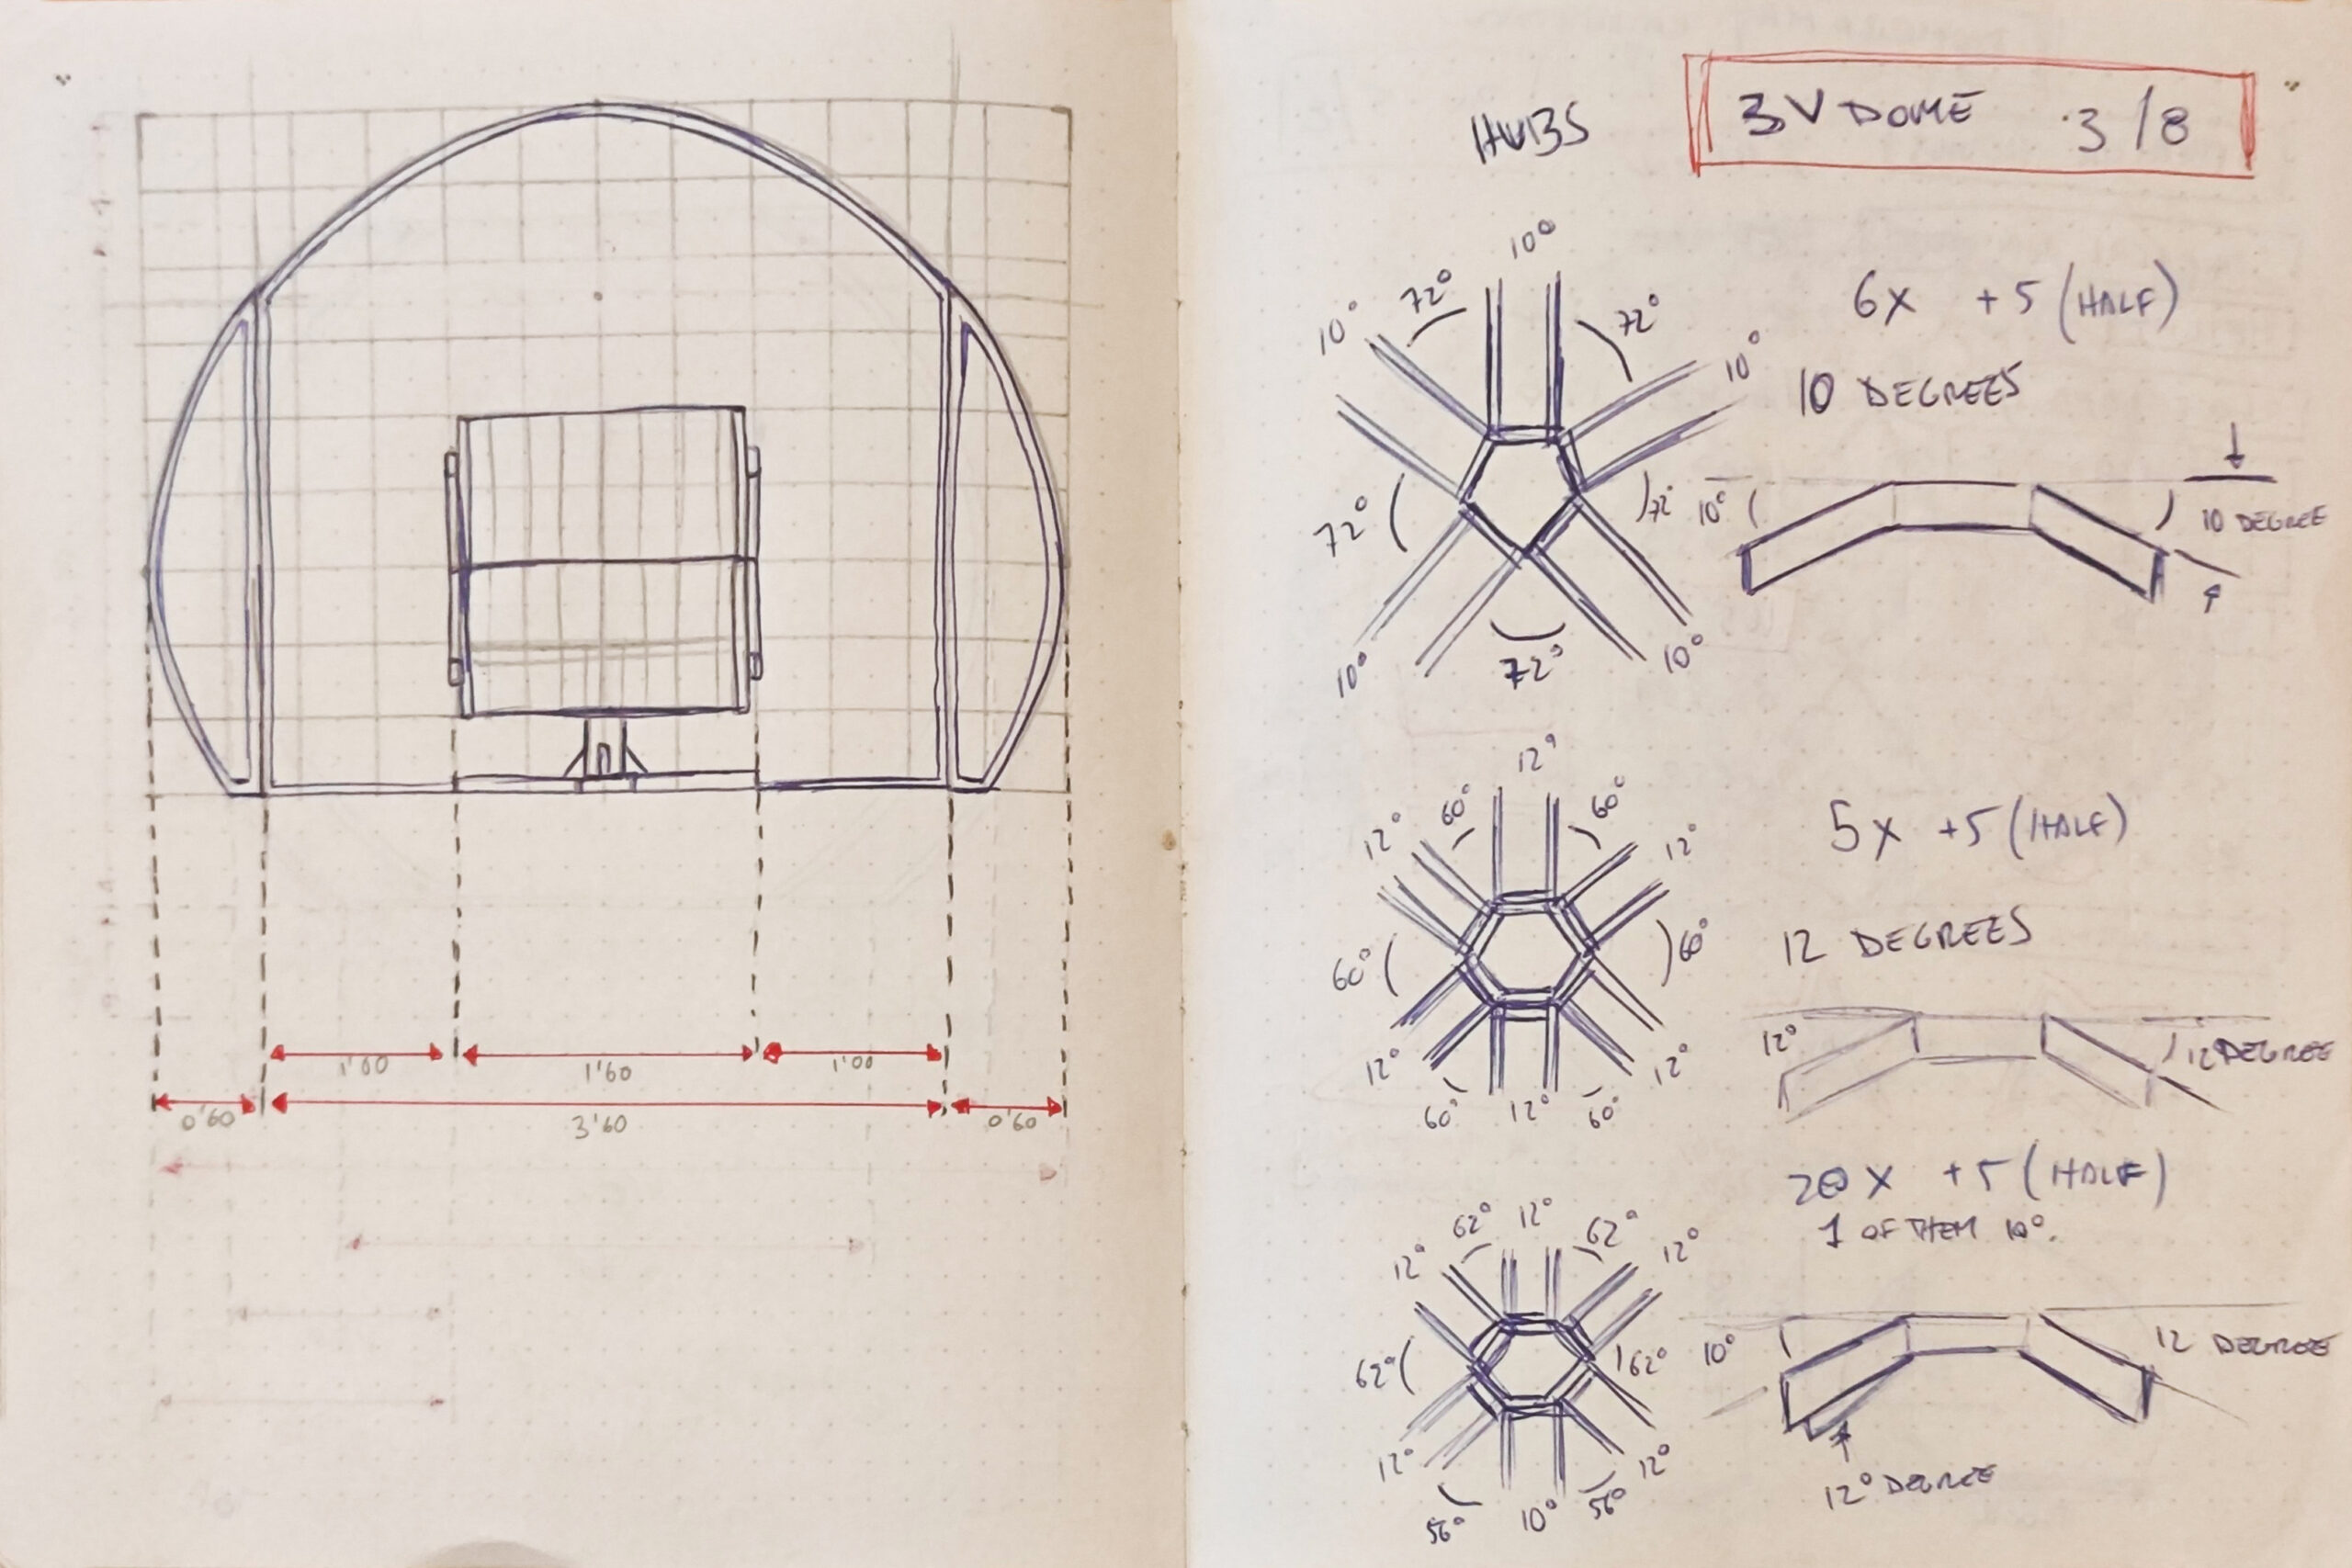 1'60
1'60
1'00
0'60
3'60
0'60
HUBS
3V DOME 3/8
10°
72°
72°
10°
10°
72°
72°
10°
72°
10°
6x +5 (HALF)
10 DEGREES
10°
10 DEGREE
12°
60°
60°
12°
12°
60°
60°
12°
12°
60°
12°
60°
5x +5 (HALF)
12 DEGREES
12°
12 DEGREE
20 x +5 (HALF)
1 OF THEM 10°.
62°
12°
62°
12°
12°
62°
62°
12°
12°
56°
10°
56°
10°
12 DEGREE
12° DEGREE